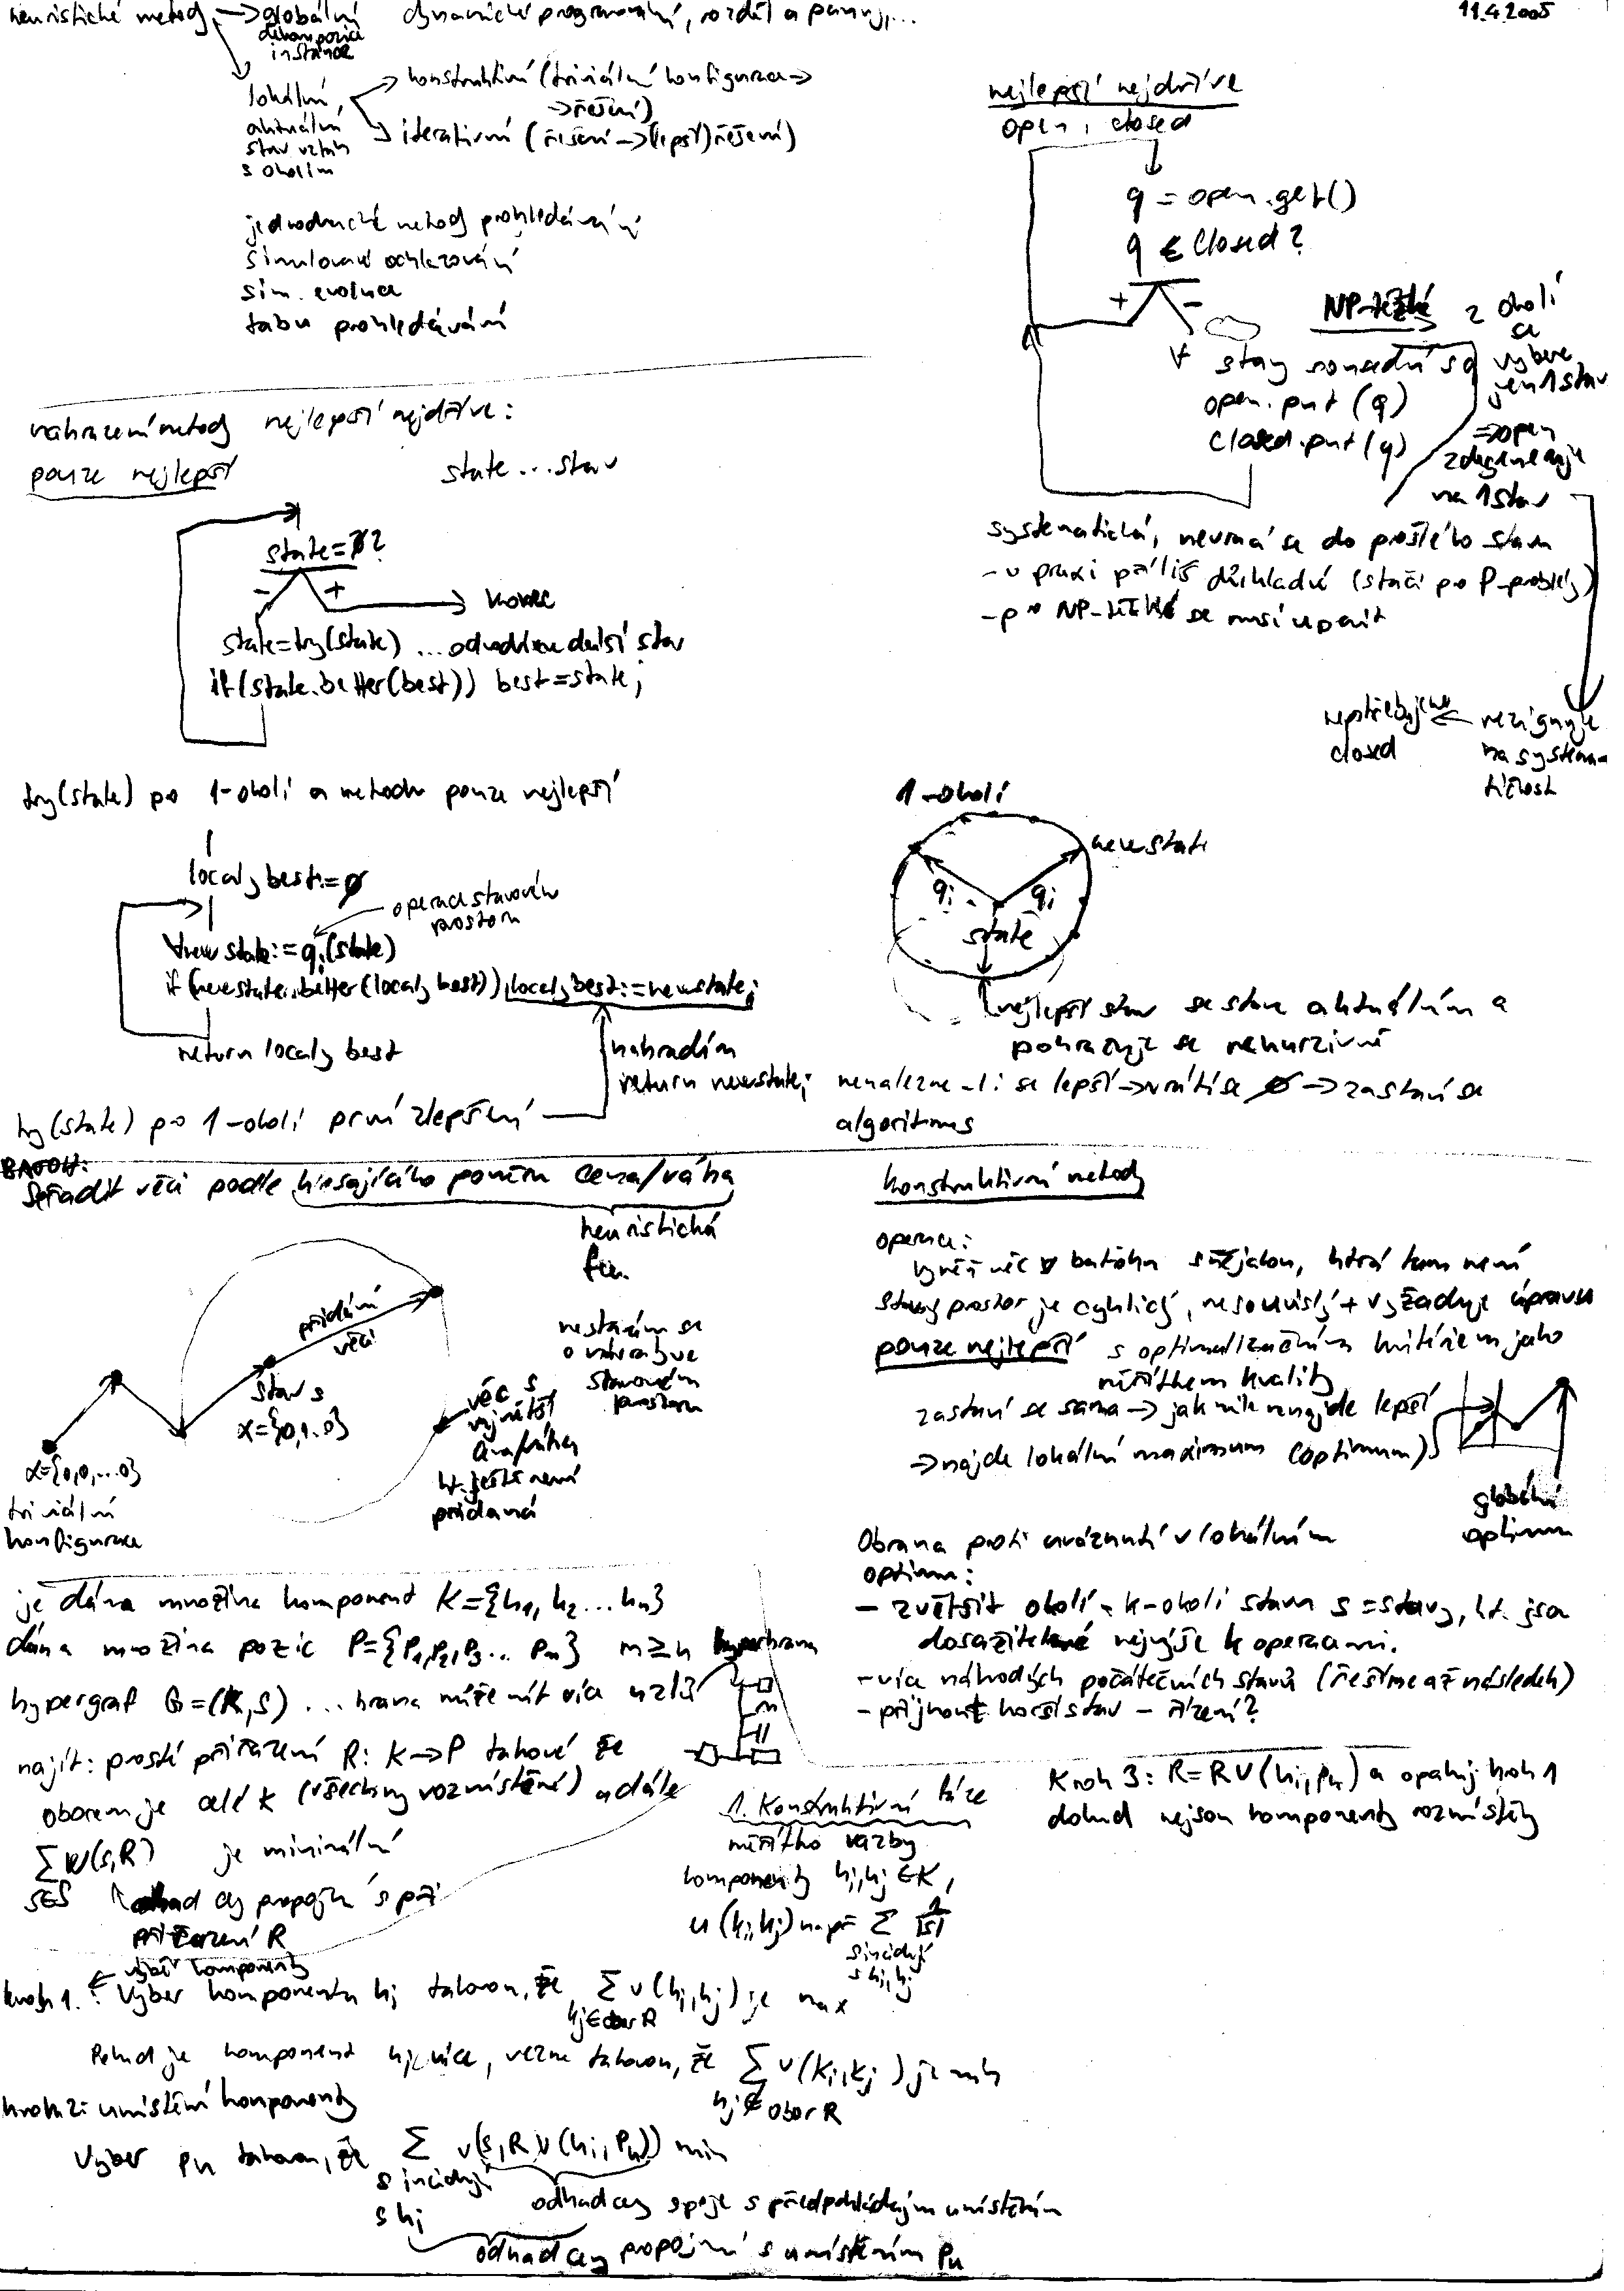 11.4.2005
heuristické metody → globální dynamické programování, rozděl a panuj,...
dekompozice
instance
lokální,
aktuální
stav vztah
s okolím
konstruktivní (triviální konfigurace →
→ řešení)
iterativní (řešení → (lepší) řešení)
jednoduché metody prohledávání
simulované ochlazování
sim. evoluce
tabu prohledávání
nejlepší nejdříve
open, closed
q = open.get()
q ∈ Closed?
+ -
∀ stavy sousední s q
open.put (q)
closed.put (q)
NP-těžké
z okolí
se
vybere
jen 1 stav
⇒ open
zdegeneruje
na 1 stav
systematická, nevrací se do prošlého stavu
- v praxi příliš důkladné (stačí pro P-problémy)
- pro NP-těžké se musí upravit
rezignuje
na systema-
tičnost
nepotřebujeme
closed
nahrazení metody nejlepší nejdříve:
pouze nejlepší
state ... stav
state = ∅?
- +
konec
state = try(state) ... další stav
if (state.better(best)) best = state;
try(state) po 1-okolí a metodu pouze nejlepší
localy best := ∅
operace stavového
prostoru
∀ newstate := qi(state)
if (newstate.better(localy best)) localy best := newstate;
return localy best
nahradím
return newstate;
try(state) po 1-okolí první zlepšení
1-okolí
newstate
qi qi
state
nejlepší stav se stane aktuálním a
pokračuje se rekurzivně
nenalezne-li se lepší → vrátí se ∅ → zastaví se
algoritmus
BATOH:
Seřadit věci podle klesajícího poměru cena/váha
heuristická
fce.
přidání
věci
stav s
x={0,1..0}
x={0,0,...0}
triviální
konfigurace
věc s
největší
cena/váha
kt. ještě není
přidaná
nestarám se
o návrat ve
stavovém
prostoru
konstruktivní metody
operace:
věc v batohu s nějakou, která tam není
stavový prostor je cyklický, nesouvislý + vyžaduje úpravu
pouze nejlepší s optimalizačním kritériem jako
měřítkem kvality
zastaví se sama → jakmile nenajde lepší
→ najde lokální maximum (optimum)
globální
optimum
Obrana proti uváznutí v lokálním
optimu:
- zvětšit okolí - k-okolí stavu s = stavy, kt. jsou
dosažitelné nejvýše k operacemi.
- více náhodných počátečních stavů (řešíme až následek)
- přijmout horší stav - řízení?
je dána množina komponent K={k1, k2 ... kn}
dána množina pozic P={P1, P2, P3 ... Pm} m ≥ n
hyperhrana
hypergraf G=(K,S) ... hrana může mít více uzlů
najít: prosté přiřazení R: K→P takové že
oborem je celé K (všechny rozmístěné) a dále
∑ w(s,R) je minimální
s∈S
odhad ceny propojky s při
přiřazení R
1. Konstruktivní fáze
měřítko vazby
komponenty ki, kj ∈ K,
u (ki, kj) např ∑ 1/|S|
s incidují
s ki, kj
Krok 3: R = R ∪ (ki, pk) a opakuj krok 1
dokud nejsou komponenty rozmístěny
výběr komponenty
krok 1. : Vyber komponentu ki takovou, že ∑ v(ki, kj) je max
kj ∈ obor R
Pokud je komponent ki více, vezme takovou, že ∑ v(ki, kj) je min
kj ∉ obor R
krok 2: umístění komponenty
Vyber pk takovou, že ∑ v(s, R ∪ (ki, pk)) min
s incidují
s ki
odhad ceny spoje s předpokládaným umístěním
odhad ceny propojení s umístěním pk